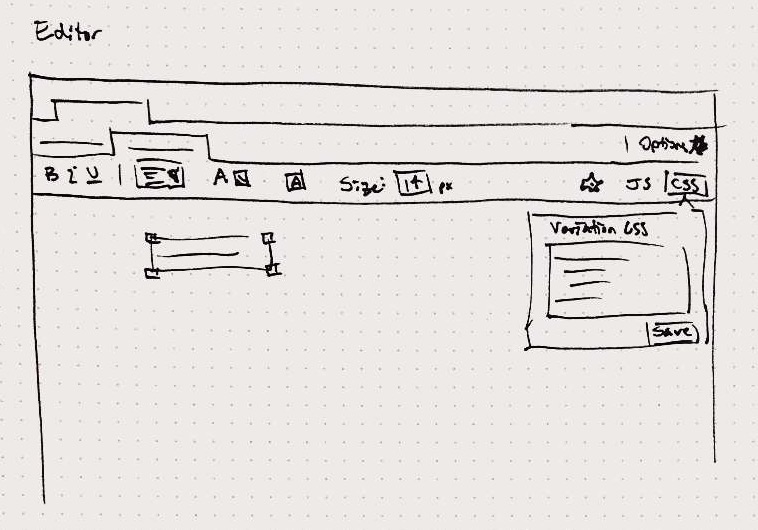 Editor
Options
B i U A A Size: 14 px JS CSS
Variation CSS
Save